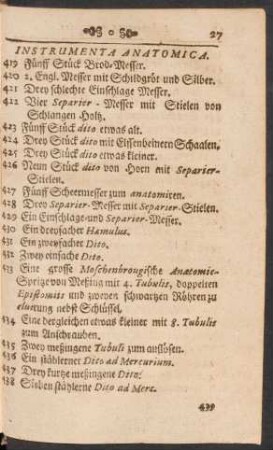 27
INSTRUMENTA ANATOMICA.
419 Fünff Stück Brod-Messer.
420 2. Engl. Messer mit Schildgröt und Silber.
421 Drey schlechte Einschlage Messer.
422 Vier Separier-Messer mit Stielen von
Schlangen Holtz.
423 Fünff Stück dito etwas alt.
424 Drey Stück dito mit Elffenbeinern Schaalen.
425 Drey Stück dito etwas kleiner.
426 Neun Stück dito von Horn mit Separier-
Stielen.
427 Fünff Scheermesser zum anatomiren.
428 Drey Separier-Messer mit Separier-Stielen.
429 Ein Einschlage-und Separier-Messer.
430 Ein dreyfacher Hamulus.
431 Ein zweyfacher Dito.
432 Zwey einfache Dito.
433 Eine grosse Moschenbrougische Anatomie-
Sprize von Meßing mit 4. Tubulis, doppelten
Epistomiis und zweyen schwartzen Röhren zu
nebst Schlüssel.
434 Eine dergleichen etwas kleiner mit 8. Tubulis
zum Anschrauben.
435 Zwey meßingene Tubuli zum auslösen.
436 Ein stählerner Dito ad Mercurium.
437 Drey kurtze meßingene Dito.
438 Sieben stählerne Dito ad Merc.
439